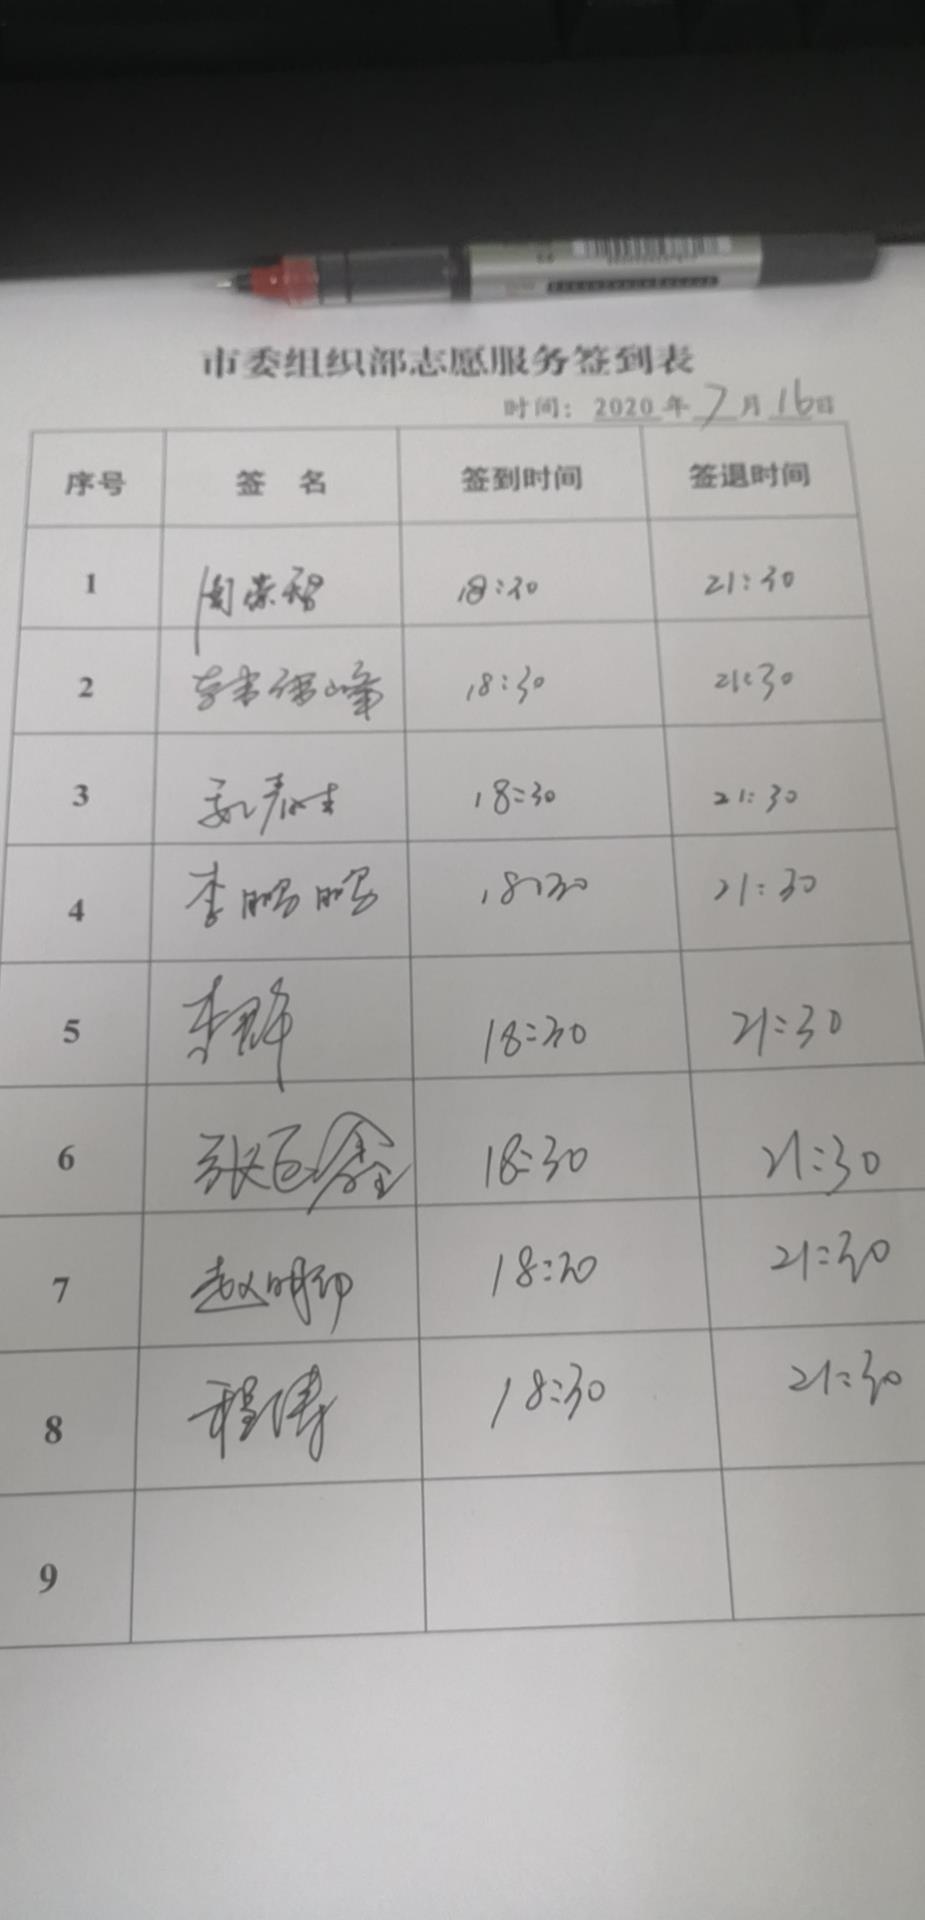 市委组织部志愿服务签到表
时间：2020年7月16日
序号 签 名 签到时间 签退时间
1 18:30 21:30
2 18:30 21:30
3 18:30 21:30
4 李鹏鹏 18:30 21:30
5 18:30 21:30
6 18:30 21:30
7 18:30 21:30
8 程涛 18:30 21:30
9